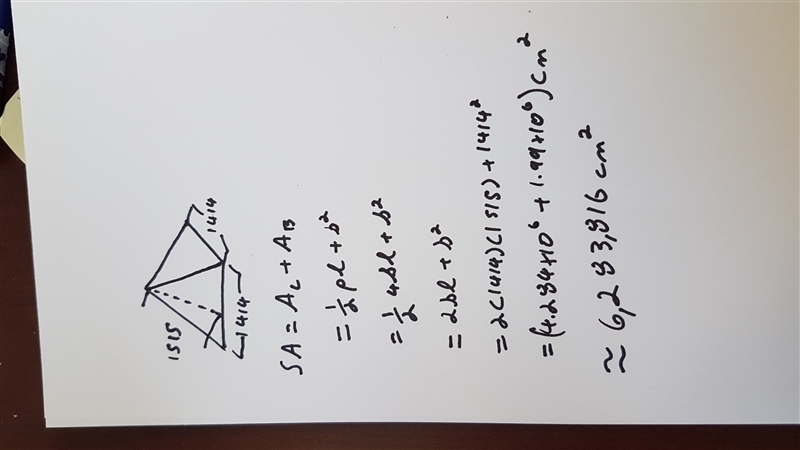 1515
1414
1414
SA = A_L + A_B
= 1/2 pl + b²
= 1/2 4bl + b²
= 2bl + b²
= 2(1414)(1515) + 1414²
= (4.284×10⁶ + 1.99×10⁶) cm²
≈ 6,283,816 cm²